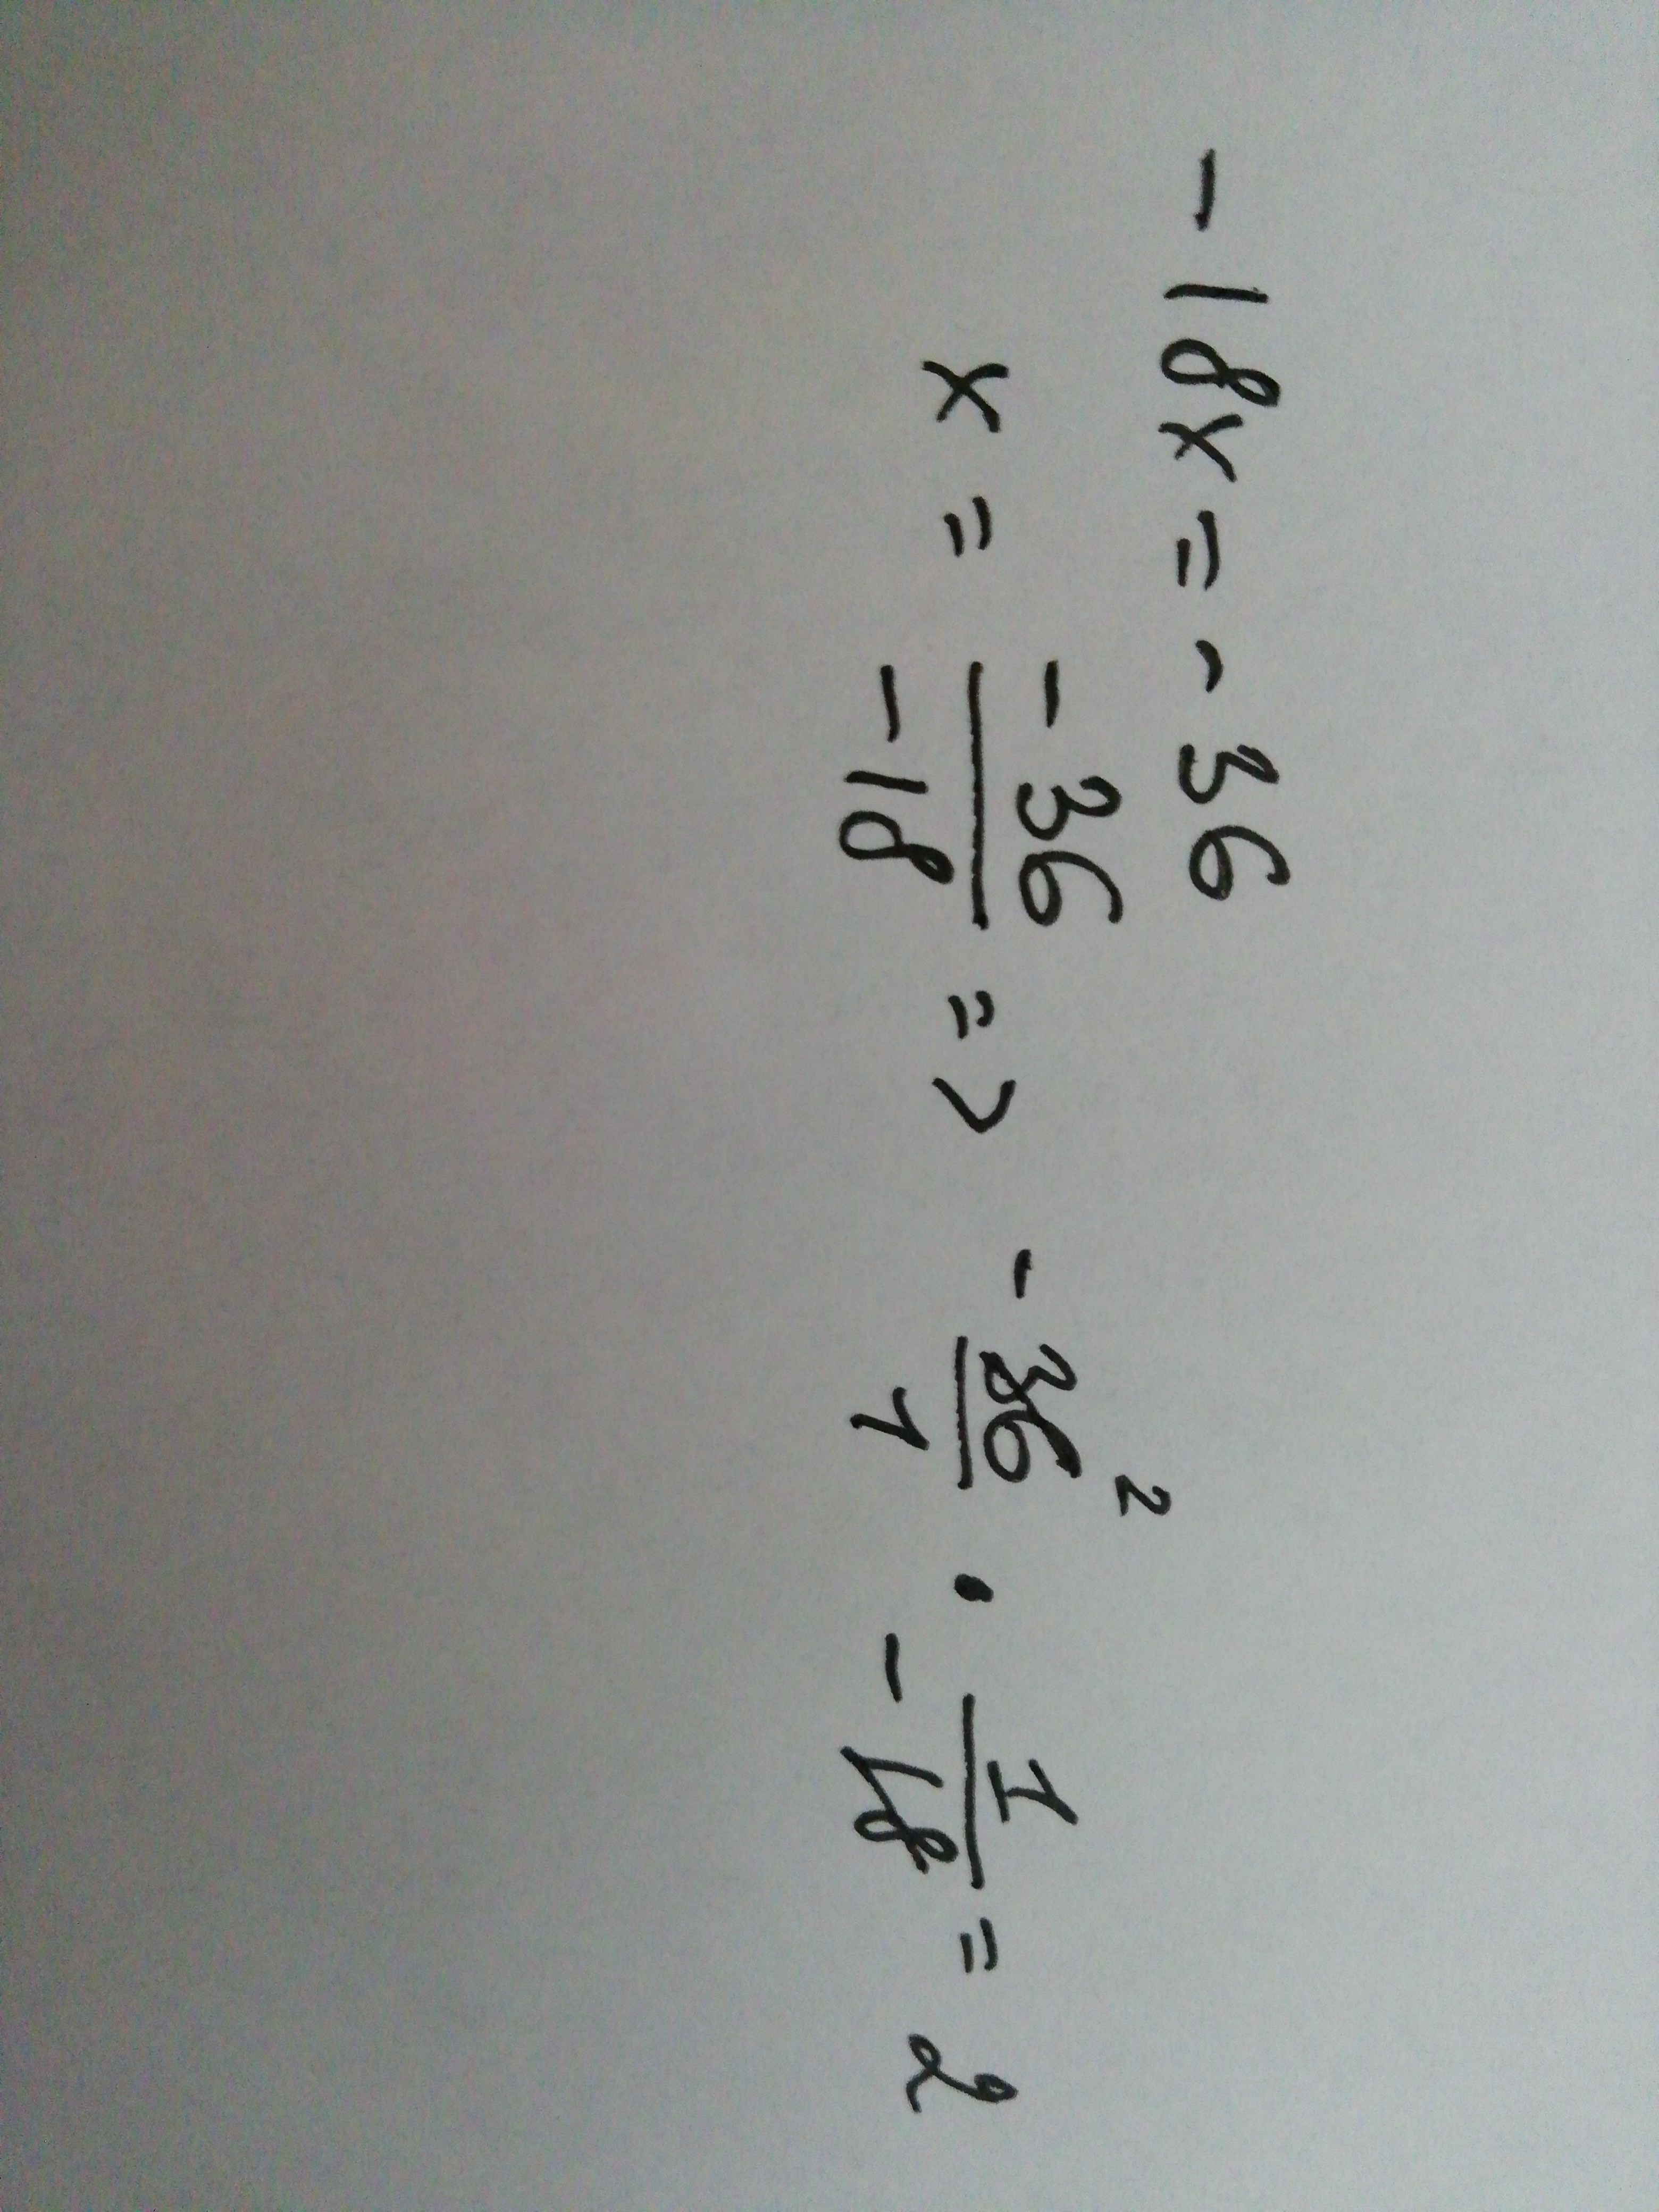 -18x = -36
x = -36/-18 => -36/1 2 · 1/-18 = 2